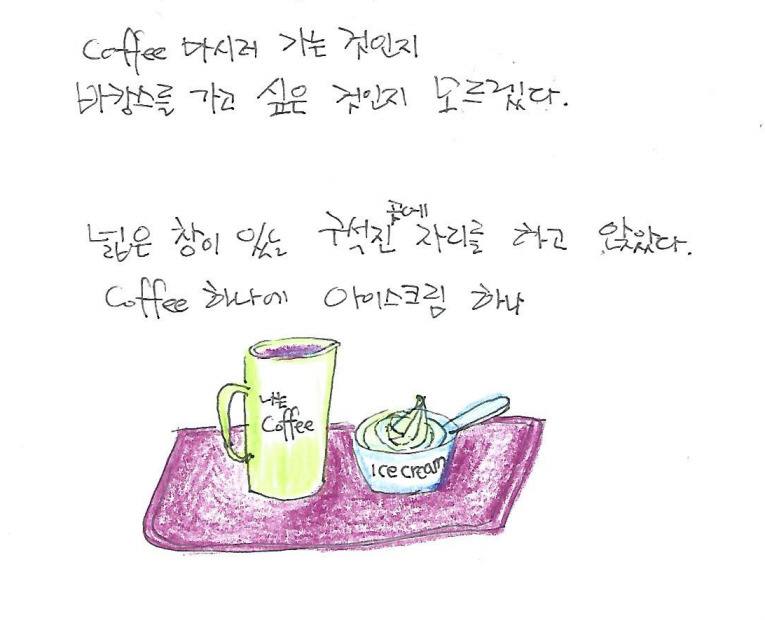 Coffee 마시러 가는 것인지
바캉스를 가고 싶은 것인지 모르겠다.
넓은 창이 있는 구석진 곳에 자리를 하고 앉았다.
Coffee 하나에 아이스크림 하나
나는
Coffee
ice cream